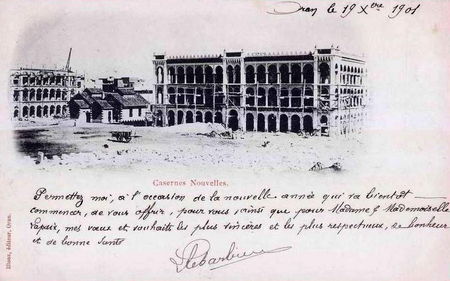 Oran le 19 Xbre 1901
Casernes Nouvelles.
Permettez moi, à l'occasion de la nouvelle année qui va bientôt
commencer, de vous offrir, pour vous, ainsi que pour Madame & Mademoiselle
mes vœux et souhaits les plus sincères et les plus respectueux, de bonheur
et de bonne santé
LeBarbier
Oran.